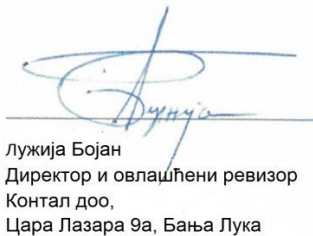 Лужија
Лужија Бојан
Директор и овлашћени ревизор
Контал доо,
Цара Лазара 9а, Бања Лука